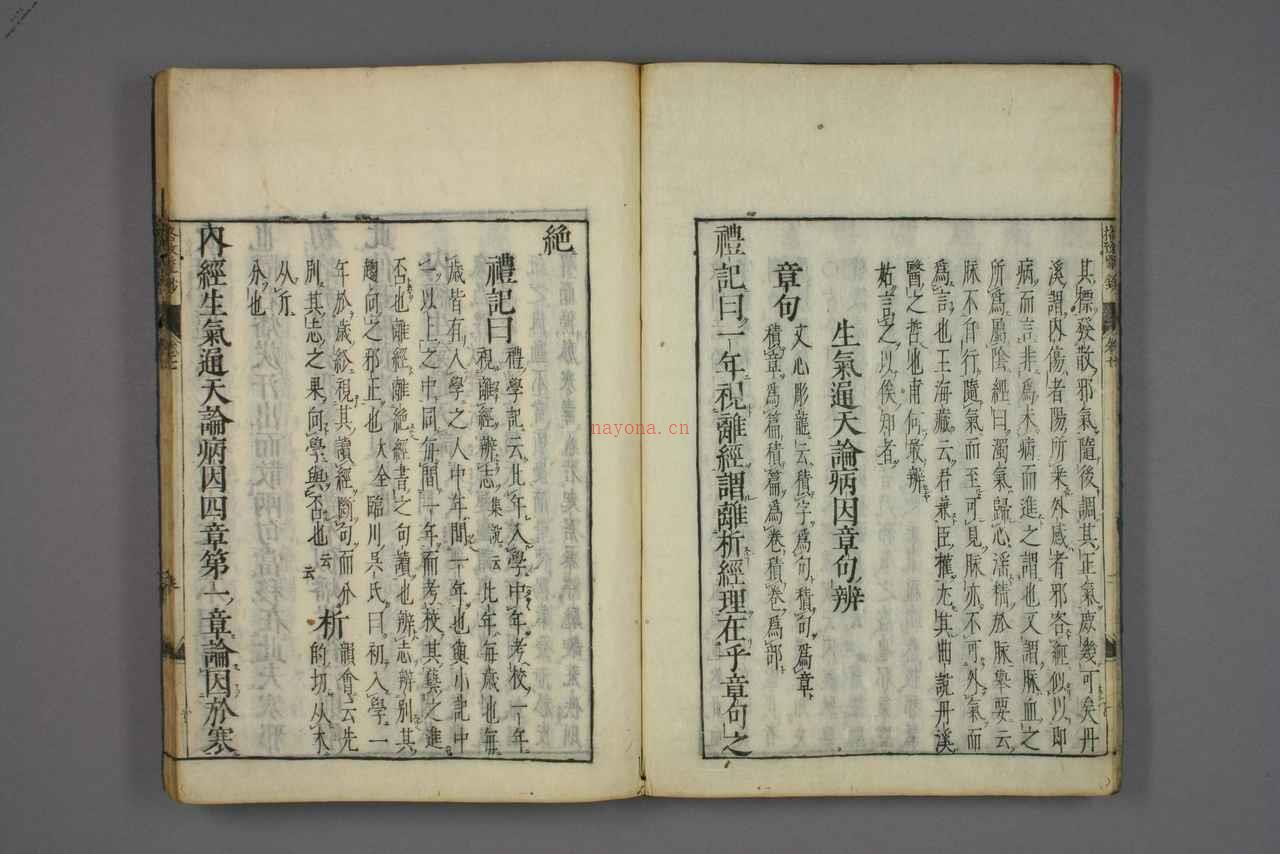 其標發散邪氣隨後調其正氣庶幾可矣丹
溪謂內傷者陽所乘外感者邪客經似以卽
病而言非爲未病而進之謂也又謂脉血之
所爲屬陰經曰濁氣歸心淫精於脉舉要云
脉不自行隨氣而至可見脉亦不可外氣而
爲言也王海藏云君兼臣權尤其曲說丹溪
醫之哲也甫何敢辨
姑言之以俟知者
生氣通天論病因章句辨
章句
文心彫龍云積字爲句積句爲章
積章爲篇積篇爲卷積卷爲部
禮記曰一年視離經謂離析經理在乎章句之
絕
禮記曰
禮學記云比年入學中年考校一年
視離經辨志集說云比年每歲也每
歲皆有入學之人中年間一年也與小記中
一以上之中同每間一年而考校其藝之進
否也離經離絕經書之句讀也辨志辨別其
趨向之邪正也大全臨川吳氏曰初入學一
年於歲終視其讀經斷句而分
別其志之果向學與否也云云
析
韻會云先
的切从木
从斤
分也
內經生氣通天論病因四章第一章論因於寒
nayona.cn